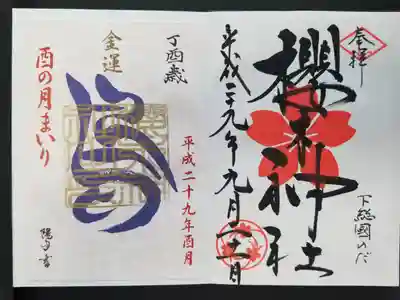 奉拝
櫻木神社
下総國のだ
平成二十九年九月二十一日
丁酉歳
金運
酉の月まいり
平成二十九年酉月